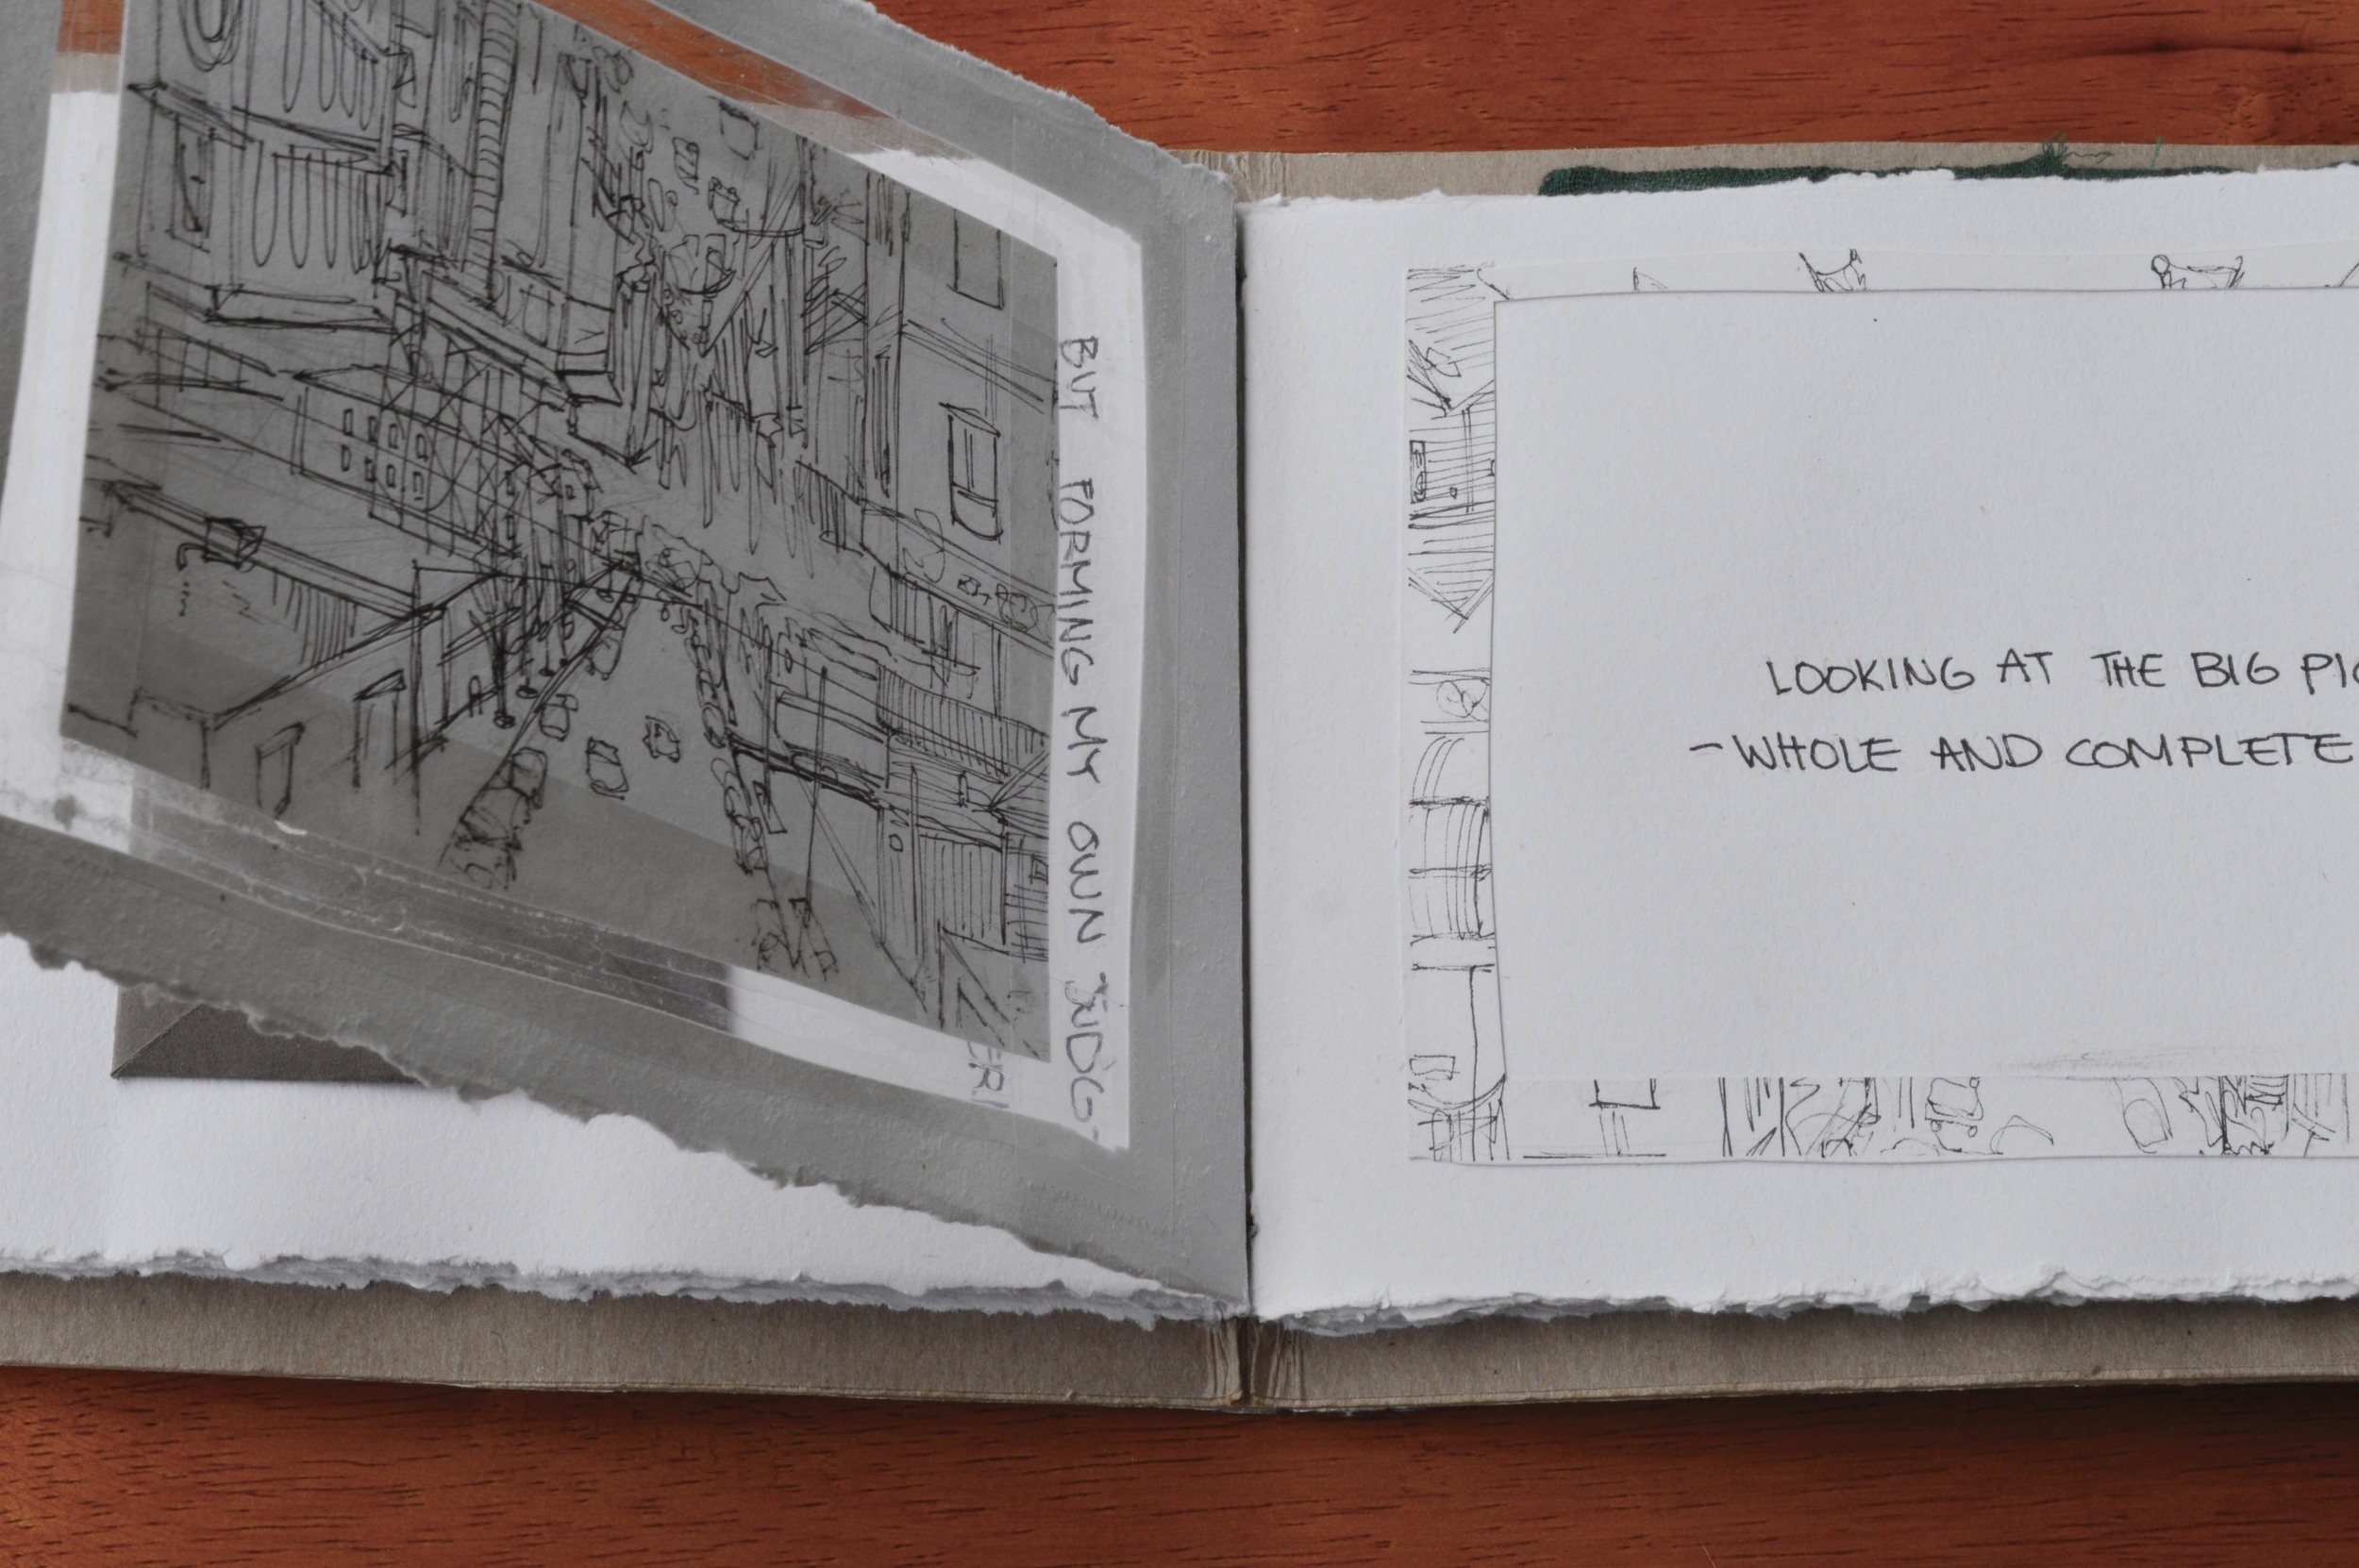 BUT FORMING MY OWN JUDG-
ERI
LOOKING AT THE BIG PIC
-WHOLE AND COMPLETE